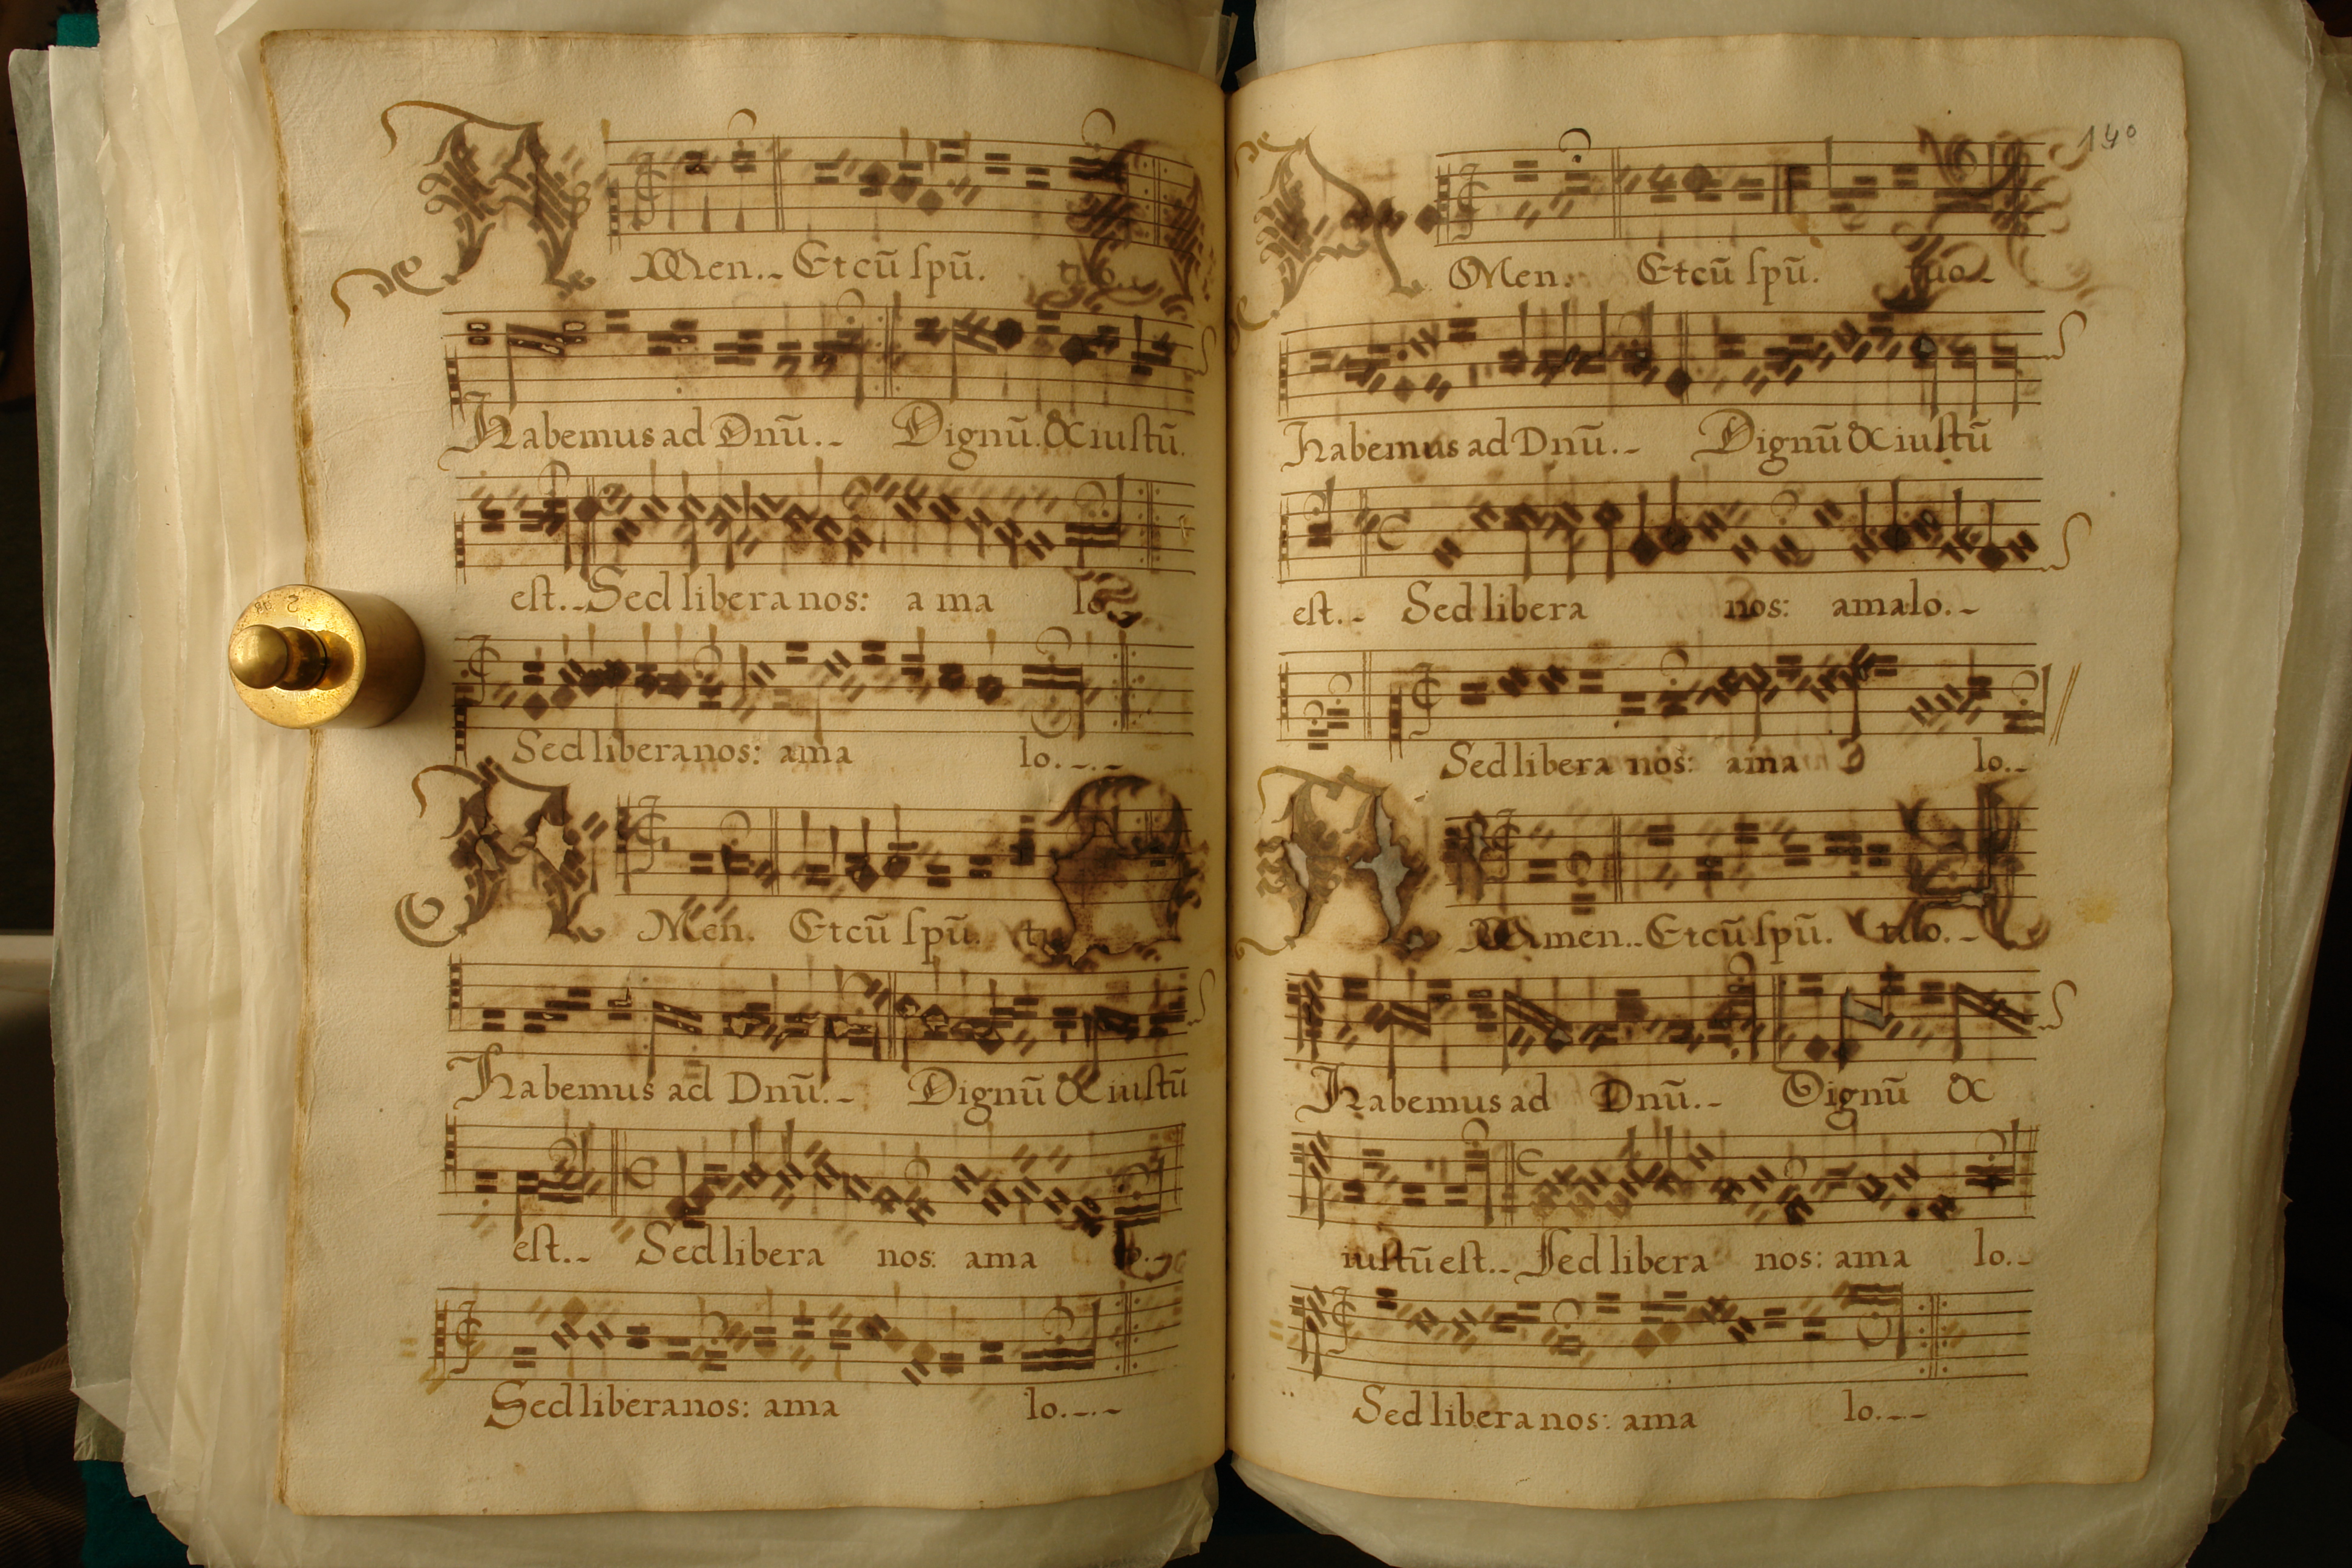 AMen.- Et cū spū. tuo
Habemus ad Dnū.- Dignū. & iustū.
est.- Sed libera nos: a ma lo
Sed libera nos: ama lo.-.-
AMen. Et cū spū.
Habemus ad Dnū.- Dignū & iustū
est.- Sed libera nos: ama lo.-
Sed libera nos: ama lo.-.-
140
AMen. Et cū spū. tuo.-
Habemus ad Dnū.- Dignū & iustū
est.- Sed libera nos: amalo.-
Sed libera nos: ama lo.-
Amen.- Et cū spū. tuo.-
Habemus ad Dnū.- Dignū &
iustū est.- Sed libera nos: ama lo.-
Sed libera nos: ama lo.--